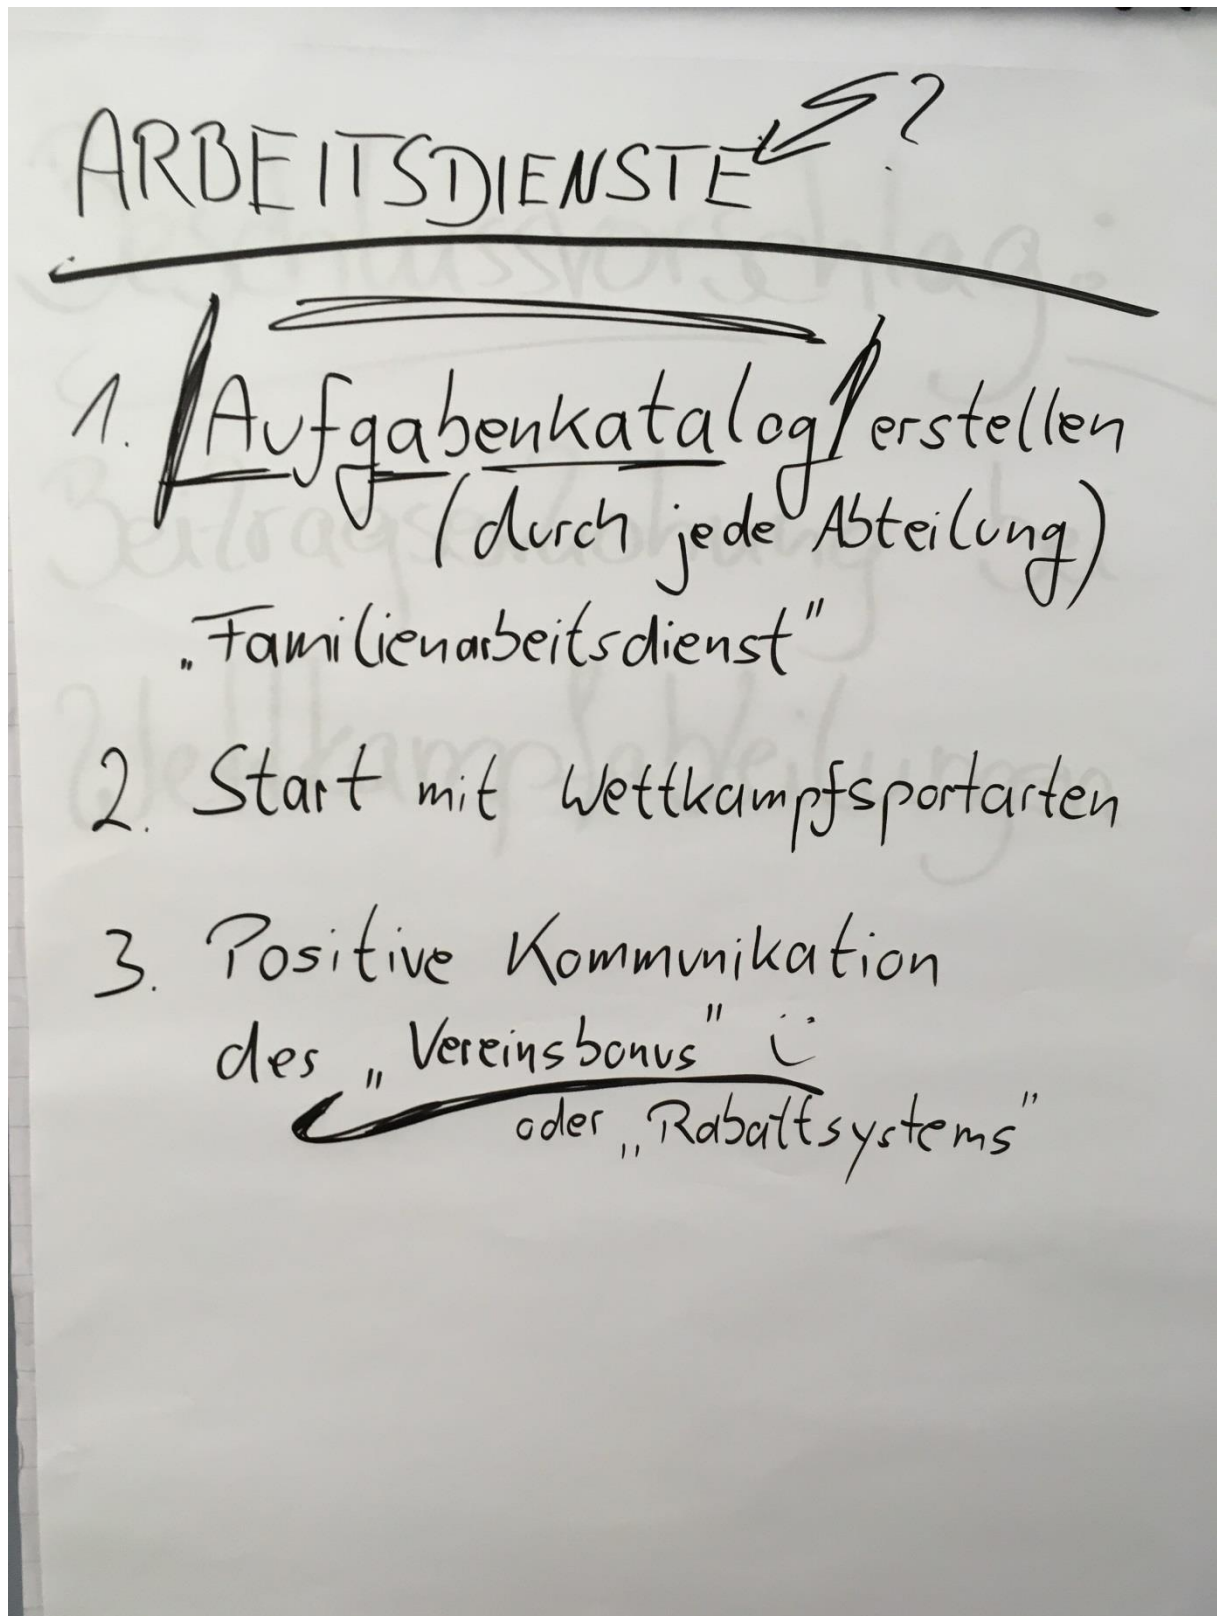 ARBEITSDIENSTE ?
1. Aufgabenkatalog erstellen
(durch jede Abteilung)
„Familienarbeitsdienst"
2. Start mit Wettkampfsportarten
3. Positive Kommunikation
des „Vereinsbonus"
oder „Rabattsystems"